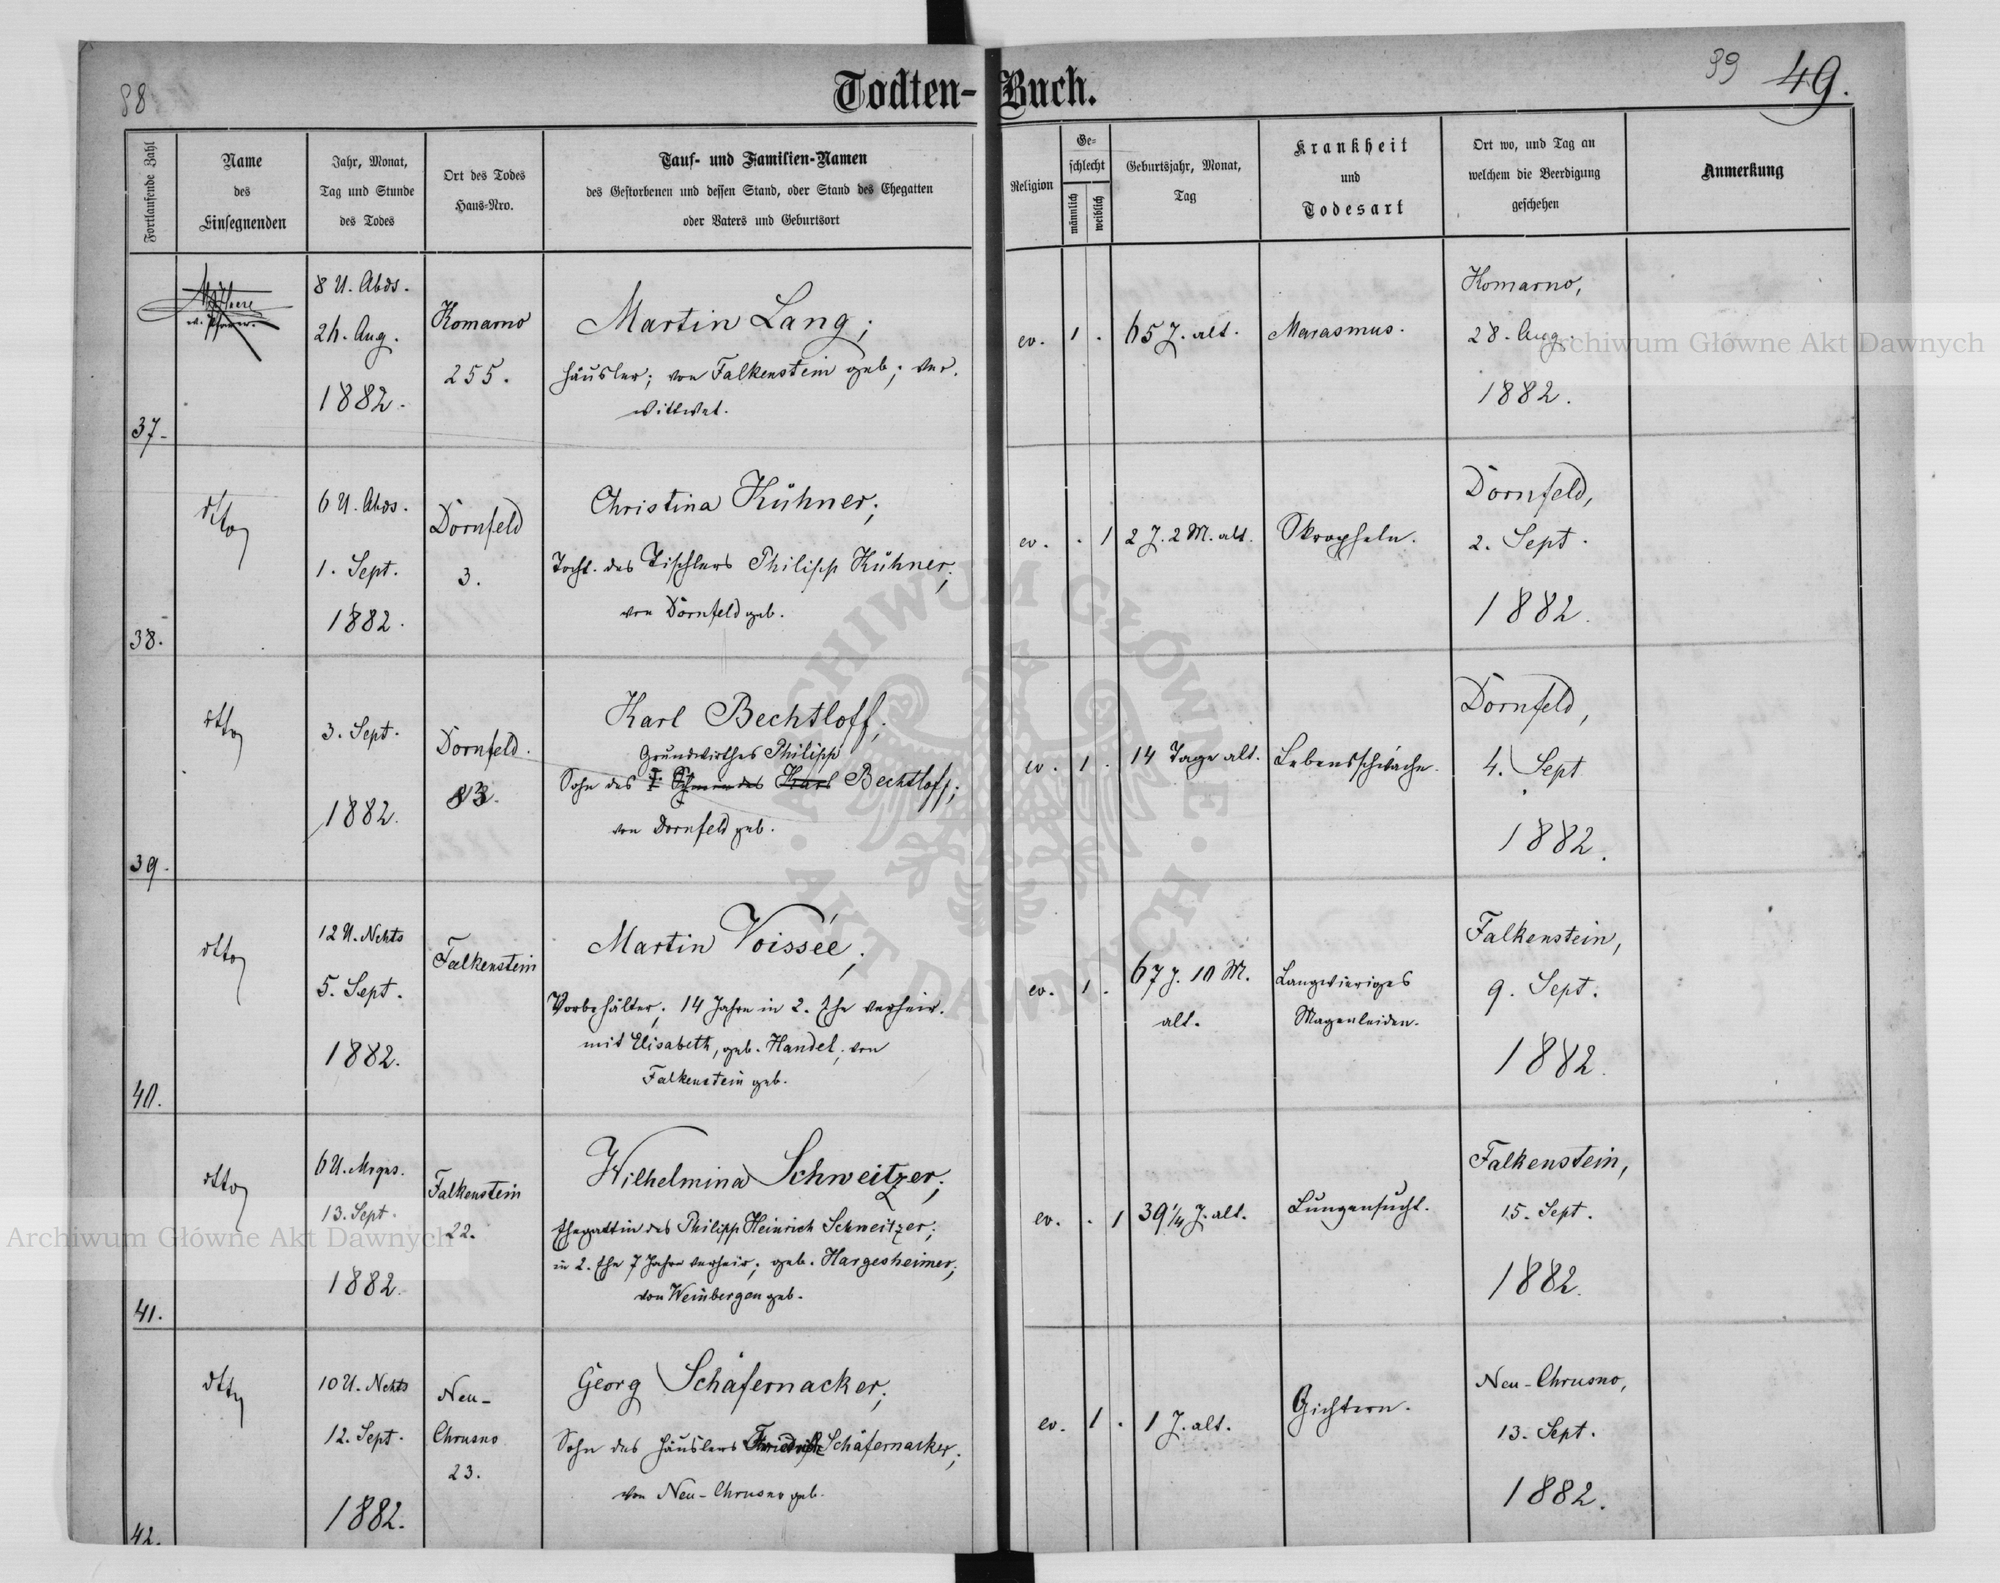 88
Todten-Buch.
39 49.
Fortlaufende Zahl
Name
des
Einsegnenden
Jahr, Monat,
Tag und Stunde
des Todes
Ort des Todes
Haus-Nro.
Tauf- und Familien-Namen
des Gestorbenen und dessen Stand, oder Stand des Ehegatten
oder Vaters und Geburtsort
Religion
Ge-
schlecht
männlich
weiblich
Geburtsjahr, Monat,
Tag
Krankheit
und
Todesart
Ort wo, und Tag an
welchem die Beerdigung
geschehen
Anmerkung
37.
8 U. Abds.
26. Aug.
1882.
Komarno
255.
Martin Lang;
Häusler; von Falkenstein geb; ver.
wittwet.
ev. 1 .
65 J. alt.
Marasmus.
Komarno,
28. Aug.
1882.
38.
dtto
6 U. Abds.
1. Sept.
1882.
Dornfeld
3.
Christina Kühner;
Tocht. des Tischlers Philipp Kühner;
von Dornfeld geb.
ev. . 1
2 J. 2 M. alt.
Skropheln.
Dornfeld,
2. Sept.
1882.
39.
dtto
3. Sept.
1882.
Dornfeld.
Karl Bechtloff;
Grundwirthes Philipp
Sohn des Karl Bechtloff;
von Dornfeld geb.
ev. 1 .
14 Tage alt.
Lebensschwäche.
Dornfeld,
4. Sept
1882.
40.
dtto
12 U. Nchts
5. Sept.
1882.
Falkenstein
Martin Voissée;
Vorbehälter; 14 Jahre in 2. Ehe verheir.
mit Elisabeth, geb. Handel; von
Falkenstein geb.
ev. 1 .
67 J. 10 M.
alt.
Langwieriges
Magenleiden.
Falkenstein,
9. Sept.
1882.
41.
dtto
6 U. Mrgns.
13. Sept.
1882.
Falkenstein
22.
Wilhelmina Schweitzer;
Ehegattin des Philipp Heinrich Schweitzer;
in 2. Ehe 7 Jahre verheir; geb. Hargesheimer;
von Weinbergen geb.
ev. . 1
39 1/4 J. alt.
Lungensucht.
Falkenstein,
15. Sept.
1882.
42.
dtto
10 U. Nchts
12. Sept.
1882.
Neu-
Chrusno
23.
Georg Schäfernacker;
Sohn des Häuslers Friedrich Schäfernacker;
von Neu-Chrusno geb.
ev. 1 .
1 J. alt.
Gichtern.
Neu-Chrusno,
13. Sept.
1882.
Archiwum Główne Akt Dawnych
Archiwum Główne Akt Dawnych
ARCHIWUM GŁÓWNE · AKT DAWNYCH ·